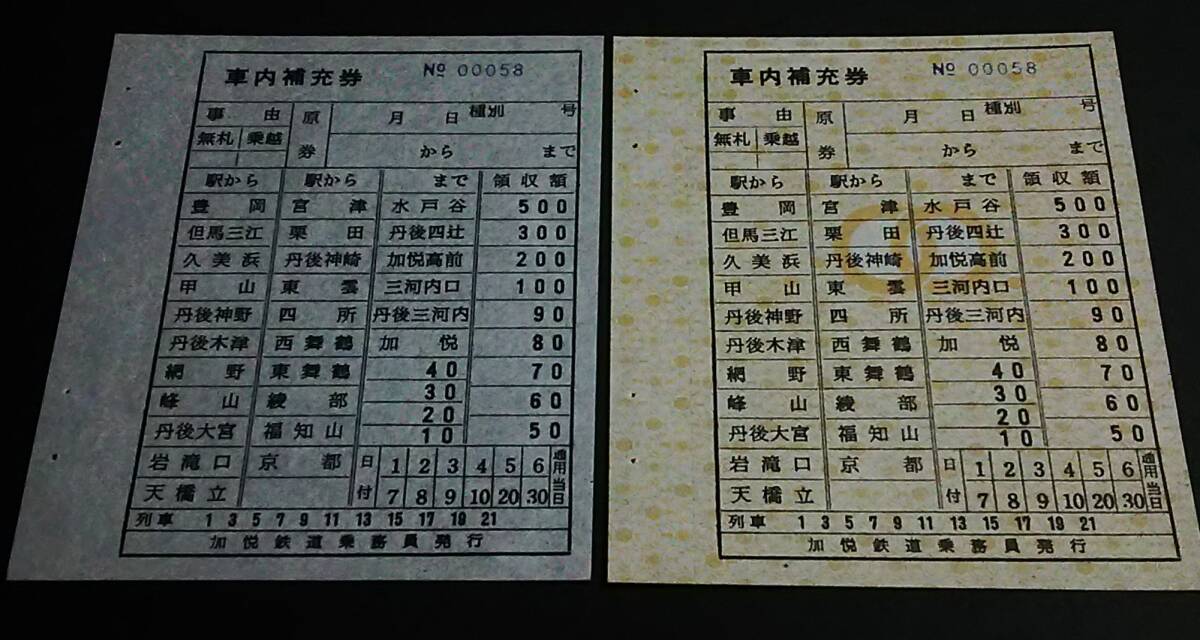 車内補充券 № 00058
事由 原券 月 日 種別 号
無札 乗越 から まで
駅から 駅から まで 領収額
豊岡 宮津 水戸谷 500
但馬三江 栗田 丹後四辻 300
久美浜 丹後神崎 加悦高前 200
甲山 東雲 三河内口 100
丹後神野 四所 丹後三河内 90
丹後木津 西舞鶴 加悦 80
網野 東舞鶴 40 70
峰山 綾部 30 60
丹後大宮 福知山 20 50
10
岩滝口 京都 日付 1 2 3 4 5 6 通用当日
天橋立 7 8 9 10 20 30
列車 1 3 5 7 9 11 13 15 17 19 21
加悦鉄道乗務員発行
車内補充券 № 00058
事由 原券 月 日 種別 号
無札 乗越 から まで
駅から 駅から まで 領収額
豊岡 宮津 水戸谷 500
但馬三江 栗田 丹後四辻 300
久美浜 丹後神崎 加悦高前 200
甲山 東雲 三河内口 100
丹後神野 四所 丹後三河内 90
丹後木津 西舞鶴 加悦 80
網野 東舞鶴 40 70
峰山 綾部 30 60
丹後大宮 福知山 20 50
10
岩滝口 京都 日付 1 2 3 4 5 6 通用当日
天橋立 7 8 9 10 20 30
列車 1 3 5 7 9 11 13 15 17 19 21
加悦鉄道乗務員発行